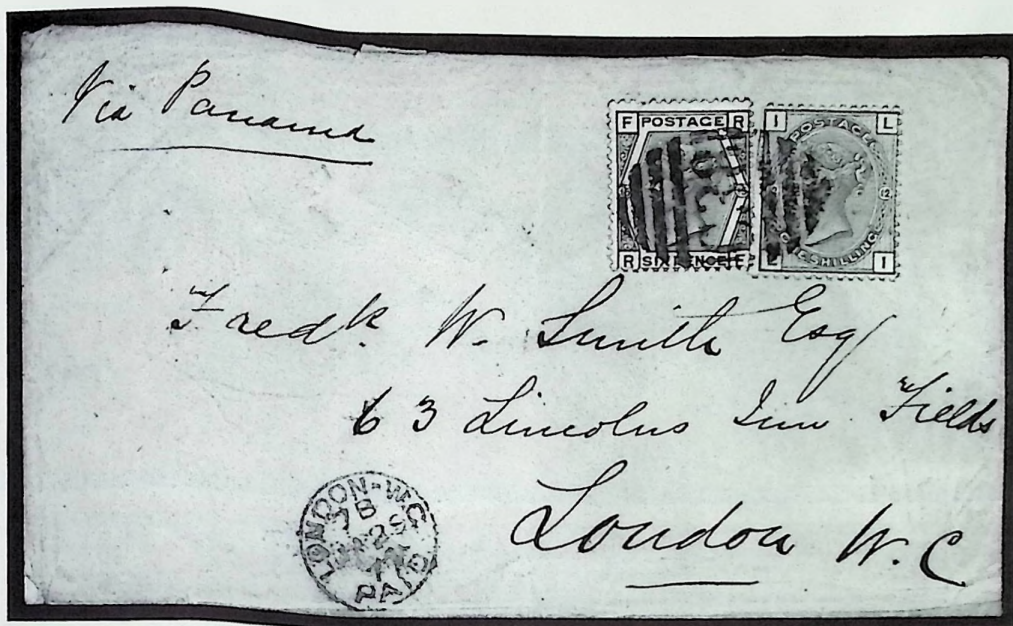 Via Panama
F POSTAGE R
R SIXPENCE F
I POSTAGE L
12
L ONE SHILLING I
Fredk. W. Smith Esq
63 Lincolns Inn Fields
London W.C
LONDON-W.C
7B
PAID